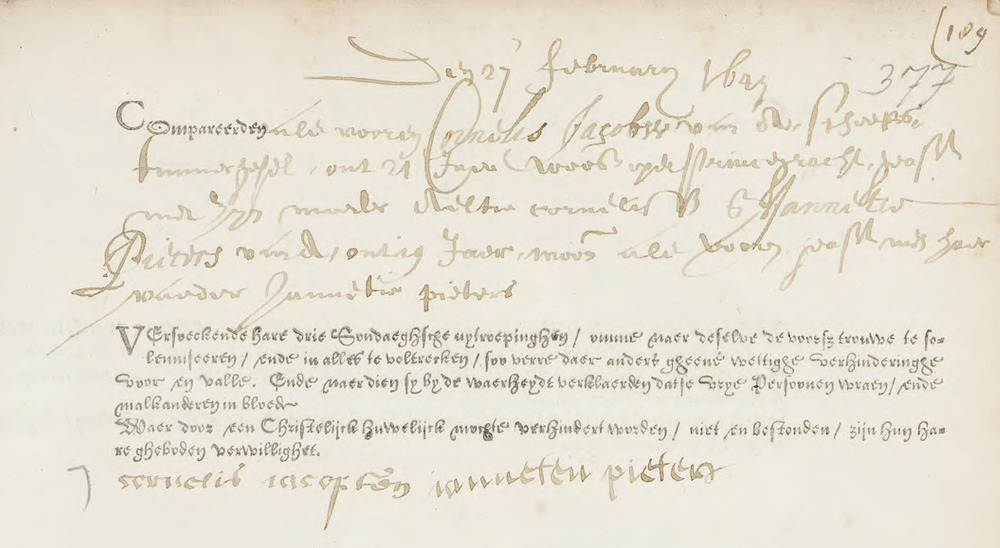 (189
377
Den 27 february 1647
COmpareerden als vooren Cornelis Jacobse van A, scheeps-
timmergesel, out 21 Jaer woont op prinsegracht, geast
met zijn moeder Aeltie cornelis & Jannetie
Pieters van A, out 19 Jaer, woont als vooren, geast met haer
vaeder Jannetie pieters
VErsoeckende hare drie Sondaeghsche uytroepinghen / omme naer deselve de voorsz trouwe te so-
lenniseeren / ende in alles te voltrecken / soo verre daer anders gheene wettighe verhinderinghe
voor en valle. Ende naerdien sy by de waerheydt verklaerden datse vrye Persoonen waren / ende
malkanderen in bloede
Waer door een Christelijck huwelijck mochte verhindert worden / niet en bestonden / zijn hun ha-
re gheboden verwillighet.
cornelis iacopsen ianneten pieters